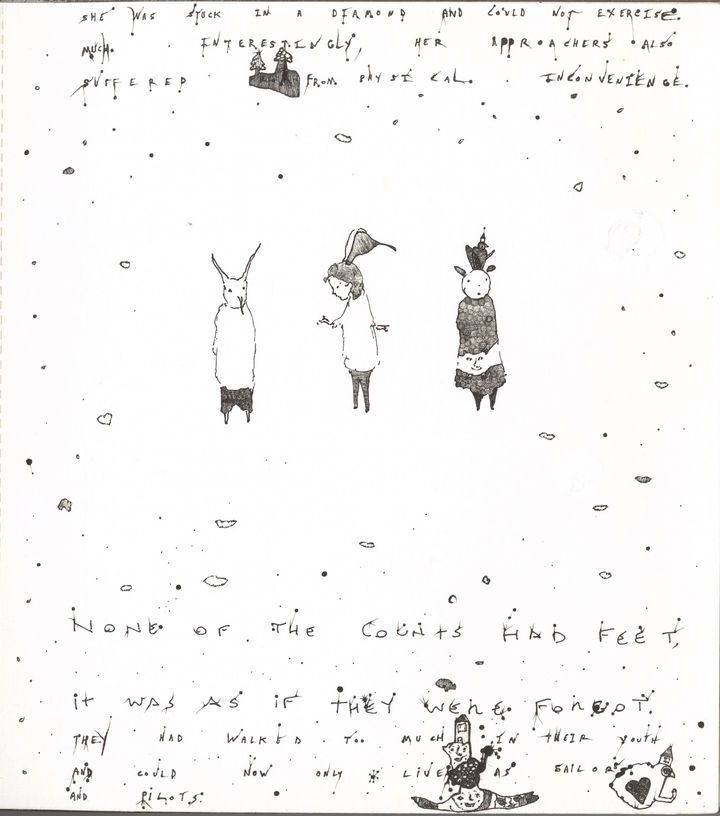 SHE WAS STUCK IN A DIAMOND AND COULD NOT EXERCISE
MUCH. INTERESTINGLY, HER APPROACHERS ALSO
SUFFERED FROM PHYSICAL. INCONVENIENCE.
NONE OF THE COUNTS HAD FEET,
it WAS AS IF tHEY WERE FORGOT.
THEY HAD WALKED TOO MUCH IN tHEIR youtH
AND COULD NOW ONLY LIVE AS SAILORS
AND PILOTS.